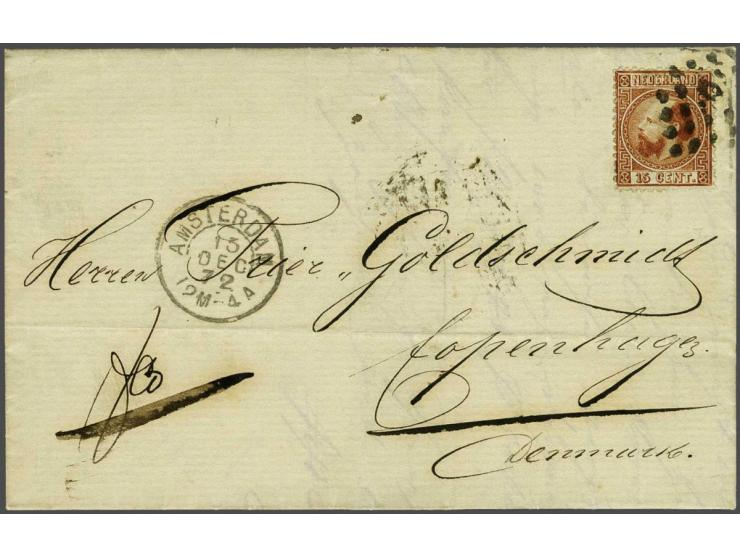 NEDERLAND
15 CENT.
AMSTERDAM
13
DEC
72
12M-4A
Herren Trier „ Goldschmidt
Copenhagen.
Denmark.